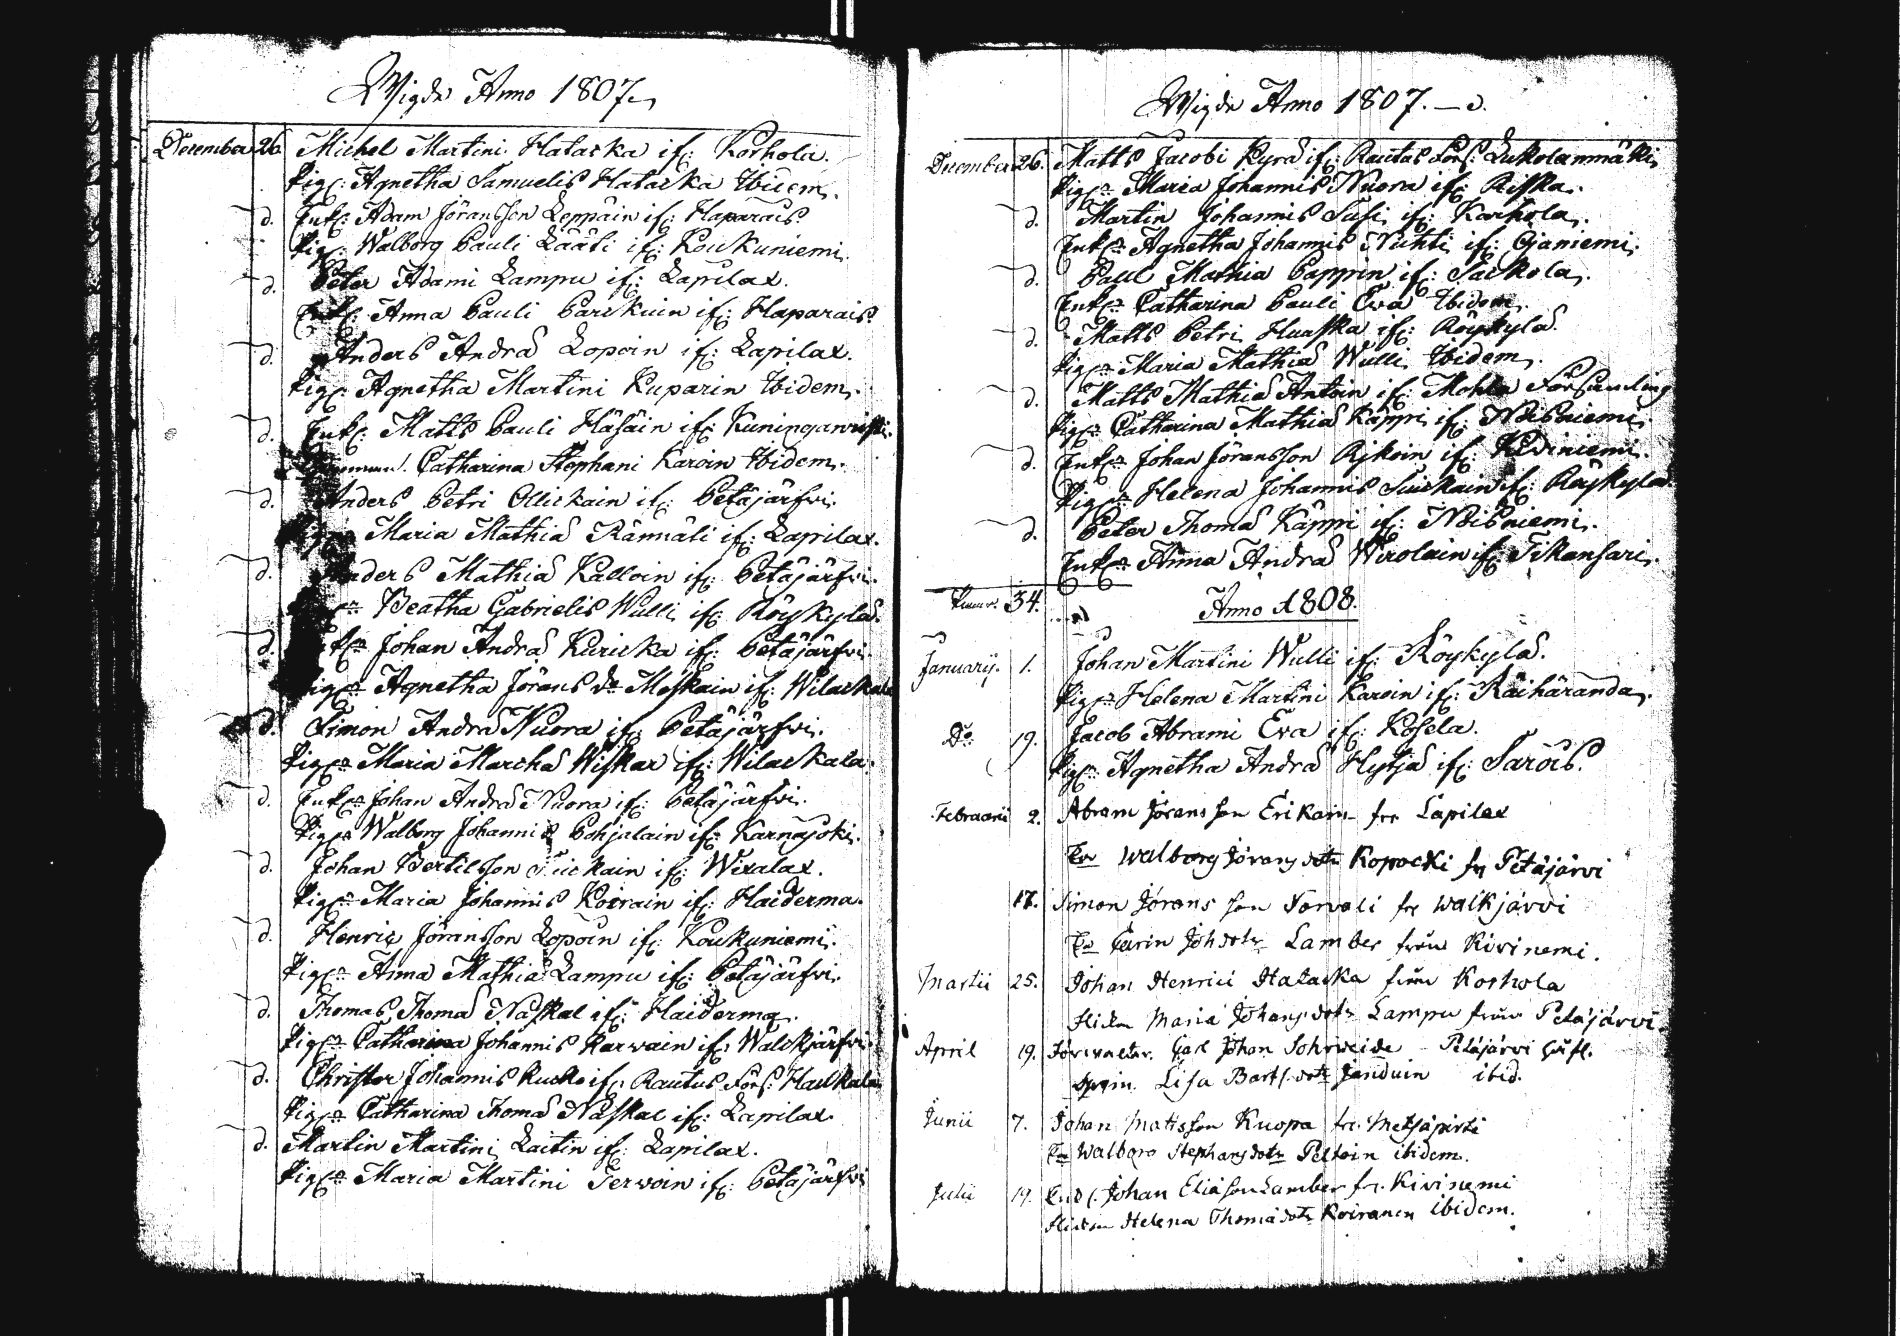 Wigde Anno 1807.
December 26. Michel Martini Hatacka if: Korhola.
Pig: Agnetha Samuelis Hatacka Ibidem.
d. Enk: Adam Jöransson Loppain if: Haparais
Pig: Walborg Pauli Lääti if: Koukuniemi.
d. Peter Adami Lampu if: Lapilax.
Enk: Anna Pauli Parckuin if: Haparais.
d. Anders Andræ Lopoin if: Lapilax.
Pig: Agnetha Martini Kuparin Ibidem.
d. Enk: Matts Pauli Häfäin if: Kuninganristi.
Catharina Stephani Karoin Ibidem.
d. Anders Petri Ollickain if: Petäjärfvi.
Maria Mathiæ Rännäli if: Lapilax.
d. Anders Mathiæ Kalloin if: Petäjärfvi.
Beatha Gabrielis Wulli if: Röykylä.
d. Johan Andræ Kuricka if: Petäjärfvi.
Pig: Agnetha Jörans dr Meskain if: Wilackala
d. Simon Andræ Nuora if: Petäjärfvi.
Pig: Maria Marchæ Wiskar if: Wilackala.
d. Enk: Johan Andræ Nuora if: Petäjärfvi.
Pig: Walborg Johannis Pohjalain if: Karnajoki.
d. Johan Bertilsson Suickain if: Wixalax.
Pig: Maria Johannis Koirain if: Haiderma.
d. Henric Jöransson Lopoin if: Koukuniemi.
Pig: Anna Mathiæ Lampu if: Petäjärfvi.
d. Thomas Thomæ Naskal if: Haiderma.
Pig: Catharina Johannis Karwain if: Walckjärfvi.
d. Christer Johannis Kucko if: Rautus Förs: Haukala
Pig: Catharina Thomæ Naskal if: Lapilax.
d. Martin Martini Laitin if: Lapilax.
Pig: Maria Martini Terwoin if: Petäjärfvi
Wigde Anno 1807.
December 26. Matts Jacobi Kyræ if: Rautus Förs: Lukolanmäki
Pig: Maria Johannis Nuora if: Riska.
d. Martin Johannis Susi if: Karhola.
Enk: Agnetha Johannis Nuhti if: Ojaniemi.
d. Paul Mathiæ Pappin if: Sackola.
Enk: Catharina Pauli Eva Ibidem.
d. Matts Petri Huuska if: Röykylä.
Pig: Maria Mathiæ Wulli Ibidem.
d. Matts Mathiæ Antoin if: Mohla Församling
Pig: Catharina Mathiæ Käppi if: Noisniemi.
d. Enk: Johan Jöransson Rjkoin if: Kiviniemi.
Pig: Helena Johannis Suickain if: Röykylä.
d. Peter Thomæ Käppi if: Noisniemi.
Enk: Anna Andræ Wirolain if: Tikansari.
34.
Anno 1808.
Januarij. 1. Johan Martini Wulli if: Röykylä.
Pig: Helena Martini Karoin if: Räihäranda.
Do 19. Jacob Abrami Eva if: Kosela.
Pig: Agnetha Andræ Hytjä if: Sarois.
Februarii 2. Abram Jörans son Erikain fr Lapilax
Walborg Jörans dotr Kopocki fr Petäjärvi
17. Simon Jörans son Torvali fr Walkjärvi
Carin Joh dotr Lamber från Kivinemi.
Martii 25. Johan Henrici Hatacka från Korhola
Maria Johans dotr Lampu från Petäjärvi.
April 19. Förvaltar. Carl Johan Sohrweide Petäjärvi
Lisa Barts dotr Janduin ibid.
Junii 7. Johan Matisson Kuopa fr. Metsäpirti
Walboro Stephans dotr Peltoin ibidem.
Julii 19. Johan Elia son Lamber fr. Kivinemi
Helena Thomä dotr Koiranen ibidem.